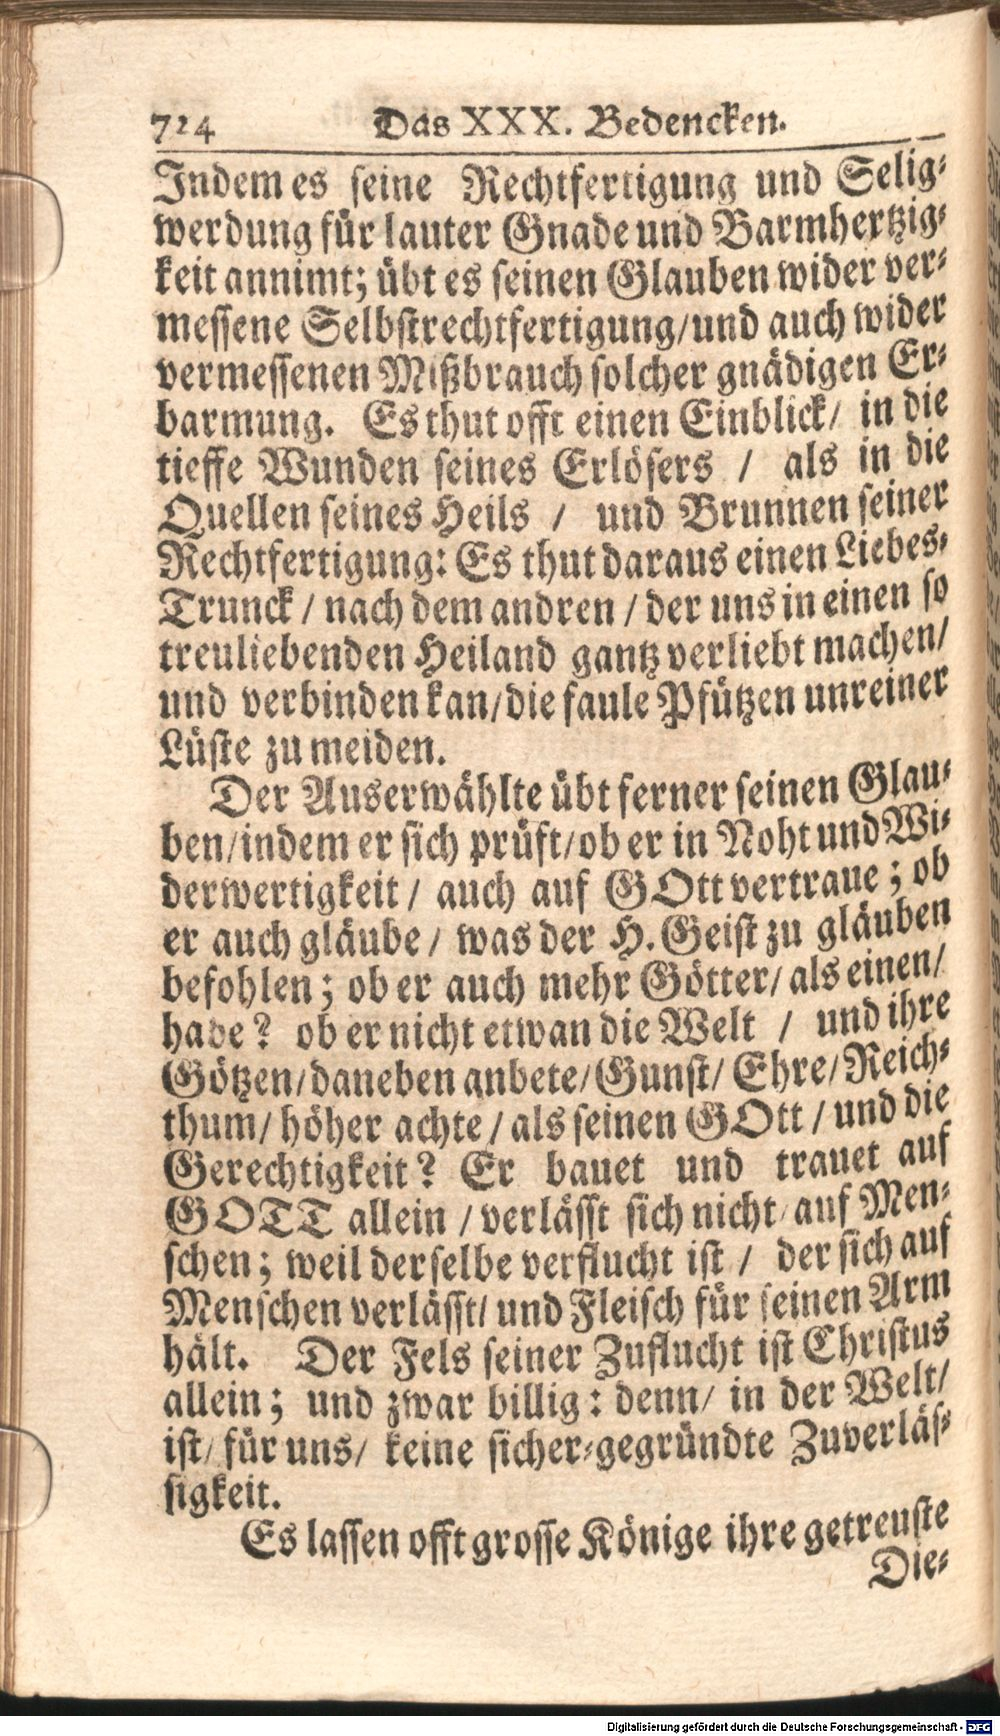 724 Das XXX. Bedencken.
Indem es seine Rechtfertigung und Selig-
werdung für lauter Gnade und Barmhertzig-
keit annimt; übt es seinen Glauben wider ver-
messene Selbstrechtfertigung/und auch wider
vermessenen Mißbrauch solcher gnädigen Er-
barmung. Es thut offt einen Einblick/ in die
tieffe Wunden seines Erlösers / als in die
Quellen seines Heils / und Brunnen seiner
Rechtfertigung: Es thut daraus einen Liebes-
Trunck / nach dem andren / der uns in einen so
treuliebenden Heiland gantz verliebt machen/
und verbinden kan/die faule Pfützen unreiner
Lüste zu meiden.
Der Auserwählte übt ferner seinen Glau-
ben/indem er sich prüft/ob er in Noht und Wi-
derwertigkeit / auch auf GOtt vertraue ; ob
er auch gläube / was der H. Geist zu gläuben
befohlen ; ob er auch mehr Götter/ als einen/
habe? ob er nicht etwan die Welt / und ihre
Götzen/daneben anbete/Gunst/ Ehre/Reich-
thum/ höher achte / als seinen GOtt / und die
Gerechtigkeit? Er bauet und trauet auf
GOTT allein / verlässt sich nicht auf Men-
schen ; weil derselbe verflucht ist / der sich auf
Menschen verlässt/ und Fleisch für seinen Arm
hält. Der Fels seiner Zuflucht ist Christus
allein ; und zwar billig : denn/ in der Welt/
ist/ für uns/ keine sicher-gegründte Zuverläs-
sigkeit.
Es lassen offt grosse Könige ihre getreuste
Die-
Digitalisierung gefördert durch die Deutsche Forschungsgemeinschaft - DFG